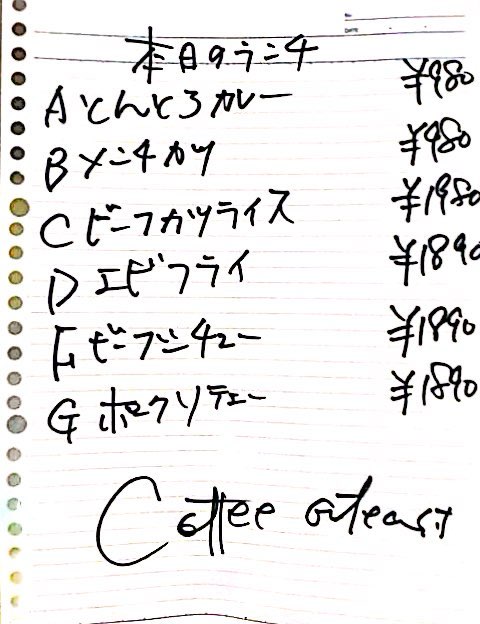 本日のランチ
Aとんとろカレー ¥980
Bメンチカツ ¥980
Cビーフカツライス ¥1980
Dエビフライ ¥1890
Fビーフシチュー ¥1890
Gポークソテェー ¥1890
Coffee